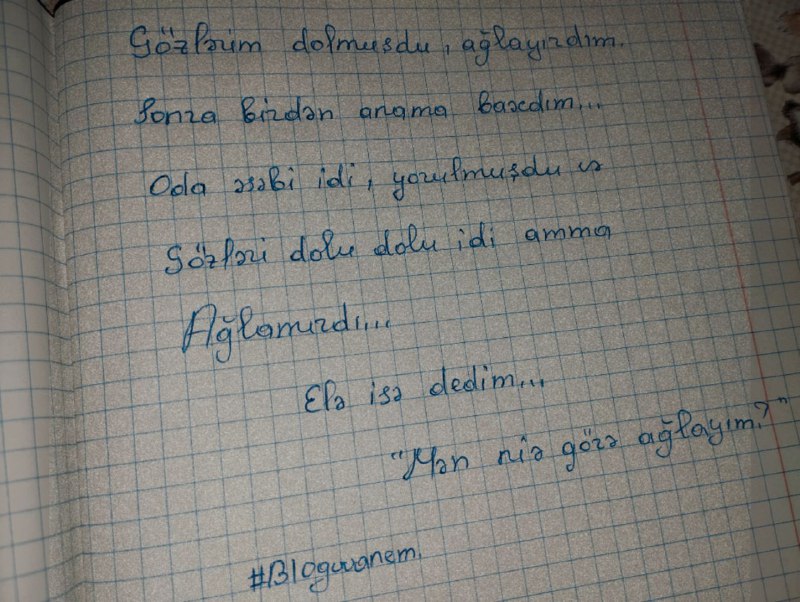 Gözlərim dolmuşdu, ağlayırdım.
Sonra birdən anama baxdım...
Oda əsəbi idi, yorulmuşdu və
gözləri dolu dolu idi amma
Ağlamırdı...
Elə isə dedim...
"Mən niə görə ağlayım?"
#Bloguvanem.